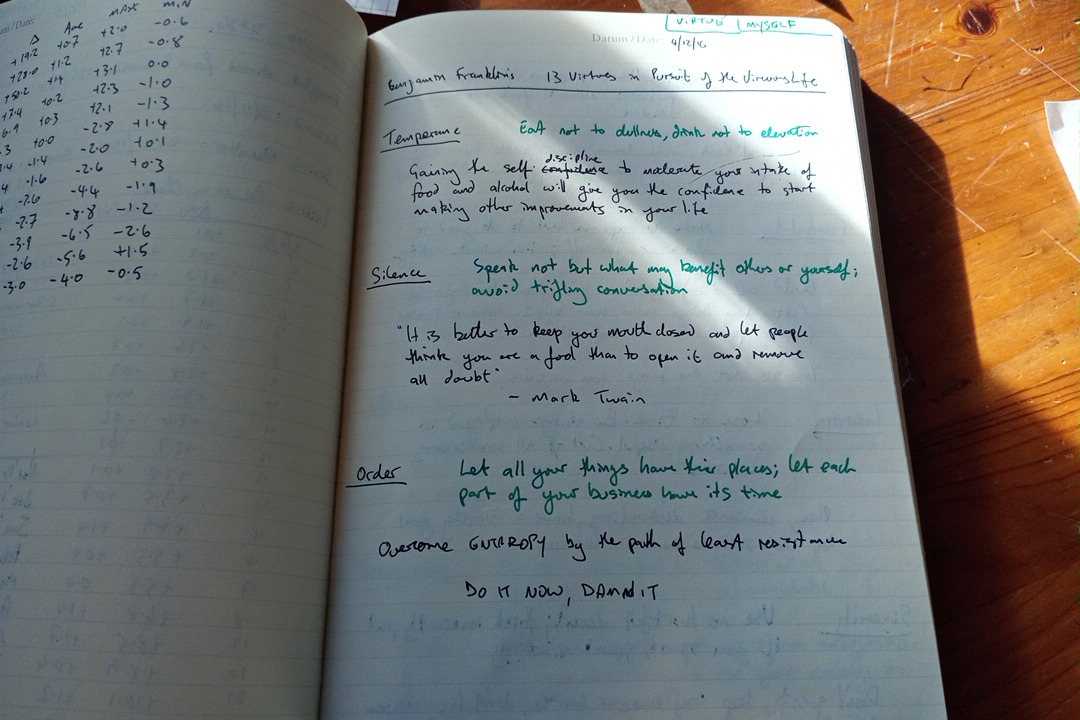 um / Date:
Δ Ave MAX MIN
+19.2 +0.7 +2.0 -0.6
+28.0 +1.2 +2.7 -0.8
+50.2 +1.4 +3.1 0.0
+7.4 +0.2 +2.3 -1.0
6.9 +0.3 +2.1 -1.3
.3 +0.0 -2.8 +1.4
-1.4 -2.0 +0.1
-1.6 -2.6 +0.3
-2.6 -4.4 -1.9
-2.7 -8.8 -1.2
-3.9 -6.5 -2.6
-2.6 -5.6 +1.5
-3.0 -4.0 -0.5
VIRTUE | MYSELF
Datum / Date: 4/12/16
Benjamin Franklin's 13 Virtues in Pursuit of the Virtuous Life
Temperance Eat not to dullness, drink not to elevation
discipline
Gaining the self confidence to moderate your intake of
food and alcohol will give you the confidence to start
making other improvements in your life
Silence Speak not but what may benefit others or yourself;
avoid trifling conversation
"It is better to keep your mouth closed and let people
think you are a fool than to open it and remove
all doubt"
- Mark Twain
Order Let all your things have their places; let each
part of your business have its time
Overcome ENTROPY by the path of least resistance
DO IT NOW, DAMNIT